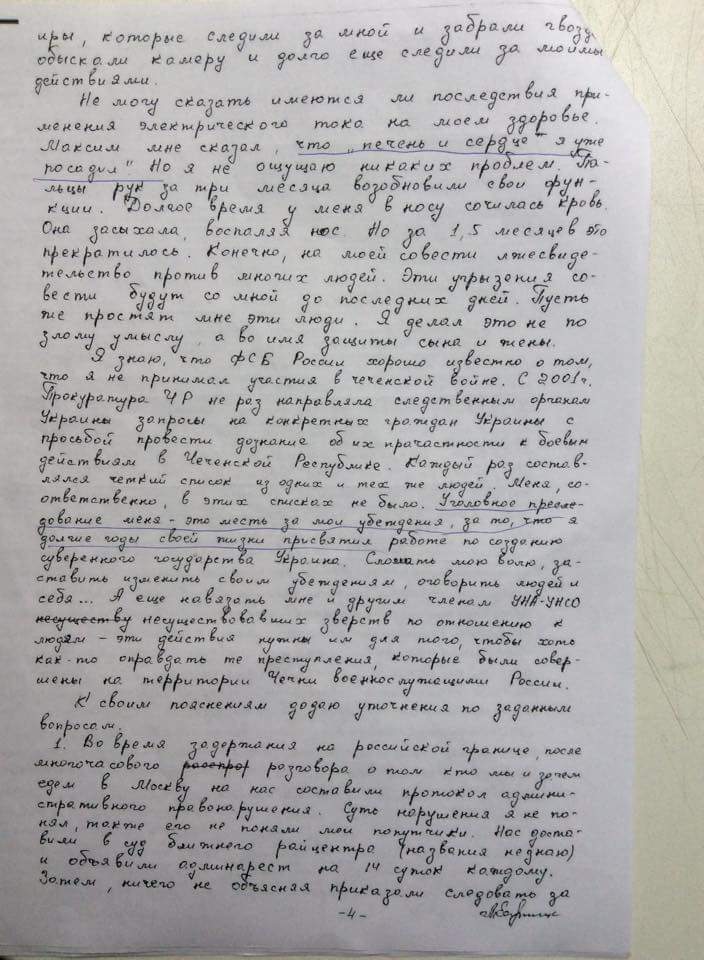 иры, которые следили за мной и забрали гвозди
обыскали камеру и долго еще следили за моимы
действиями.
Не могу сказать имеются ли последствия при-
менения электрического тока на моем здоровье.
Максим мне сказал, что "печень и сердце" я уже
посадил" Но я не ощущаю никаких проблем. Па-
льцы рук за три месяца возобновили свои фун-
кции. Долгое время у меня в носу сочилась кровь.
Она засыхала, воспаляя нос. Но за 1,5 месяцев это
прекратилось. Конечно, на моей совести лжесвиде-
тельство против многих людей. Эти угрызения со-
вести будут со мной до последних дней. Пусть
же простят мне эти люди. Я делал это не по
злому умыслу, а во имя защиты сына и жены.
Я знаю, что ФСБ России хорошо известно о том,
что я не принимал участия в чеченской войне. С 2001г.
Прокуратура ЧР не раз направляла следственным органам
Украины запросы на конкретных граждан Украины с
просьбой провести дознание об их прачастности к боевым
действиям в Чеченской Республике. Каждый раз состав-
лялся четкий список из одних и тех же людей. Меня, со-
ответственно, в этих списках не было. Уголовное пресле-
дование меня - это месть за мои убеждения, за то, что я
долгие годы своей жизни присвятил работе по созданию
суверенного государства Украина. Сломать мою волю, за-
ставить изменить своим убеждениям, оговорить людей и
себя... А еще навязать мне и другим членам УНА-УНСО
несуществу несуществовавших зверств по отношению к
людям - эти действия нужны им для того, чтобы хоть
как-то оправдать те преступления, которые были совер-
шены на территории Чечни военнослужащими России.
К своим пояснениям додаю уточнения по заданным
вопросам.
1. Во время задержания на российской границе, после
многочасового распрор разговора о том кто мы и зачем
едем в Москву на нас составили протокол админи-
стративного правонарушения. Суть нарушения я не по-
нял, также его не поняли мои попутчики. Нас доста-
вили в суд ближнего райцентра (названия не знаю)
и объявили админарест на 14 суток каждому.
Затем, ничего не объясняя приказали следовать за
-4-